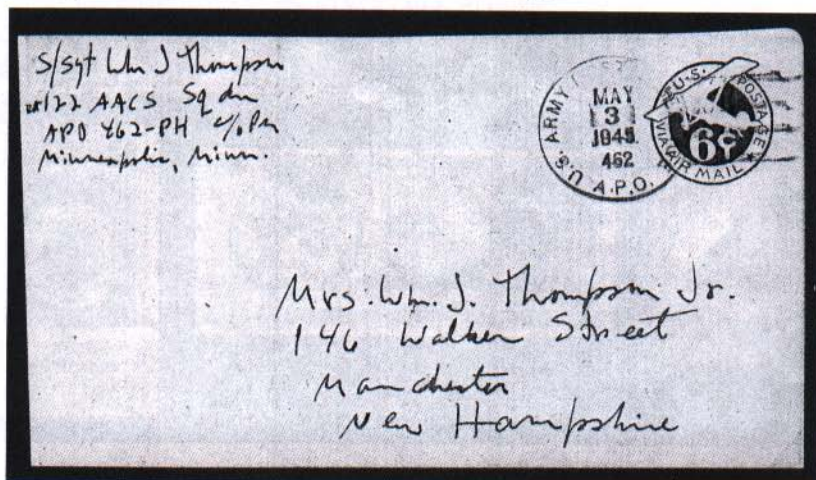 S/Sgt Wm J Thompson
#122 AACS Sqdn
APO 462-PH c/o PM
Minneapolis, Minn.
U.S. ARMY
A.P.O.
MAY
3
1945
462
U.S. POSTAGE
VIA AIR MAIL
6¢
Mrs. Wm. J. Thompson Jr.
146 Walker Street
Manchester
New Hampshire